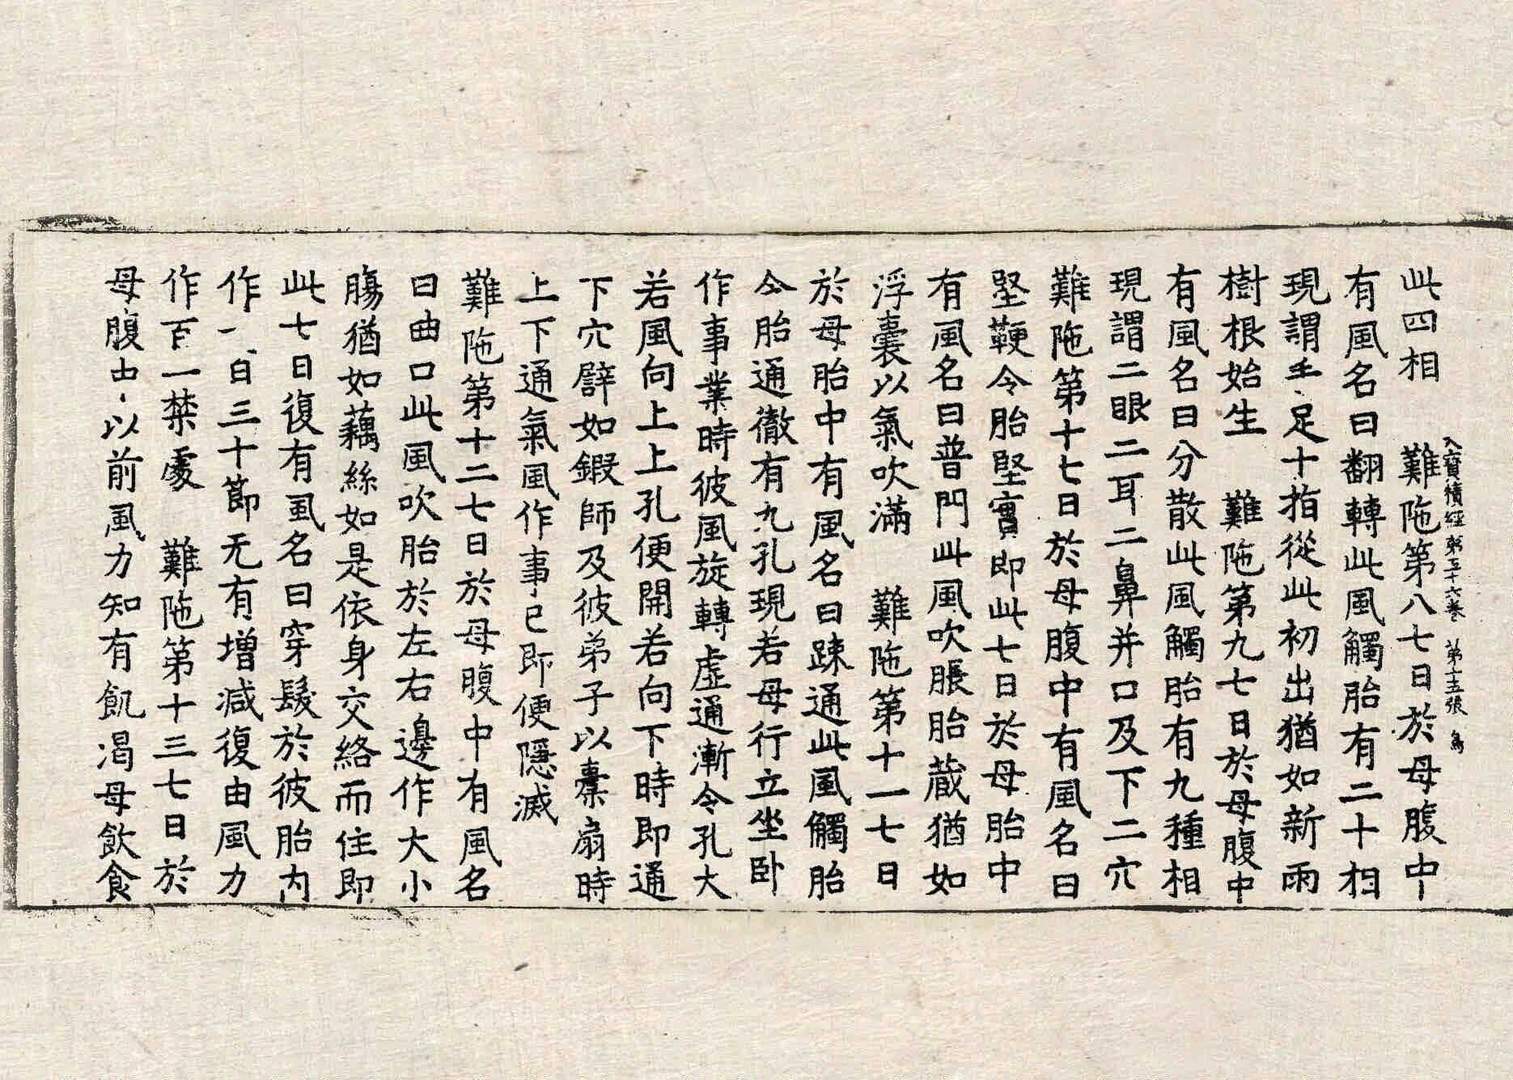 此四相　難陁第八七日於母腹中
入寶積經第五十六卷　第十五張　鳥
有風名曰翻轉此風觸胎有二十相
現謂手足十指從此初出猶如新雨
樹根始生　難陁第九七日於母腹中
有風名曰分散此風觸胎有九種相
現謂二眼二耳二鼻并口及下二穴
難陁第十七日於母腹中有風名曰
堅鞕令胎堅實即此七日於母胎中
有風名曰普門此風吹脹胎蔵猶如
浮囊以氣吹滿　難陁第十一七日
於母胎中有風名曰踈通此風觸胎
令胎通徹有九孔現若母行立坐卧
作事業時彼風旋轉虛通漸令孔大
若風向上上孔便開若向下時即通
下穴譬如鍜師及彼弟子以橐扇時
上下通氣風作事已即便隱滅
難陁第十二七日於母腹中有風名
曰曲口此風吹胎於左右邊作大小
膓猶如藕絲如是依身交絡而住即
此七日復有風名曰穿髮於彼胎內
作一百三十節无有增減復由風力
作百一禁處　難陁第十三七日於
母腹中以前風力知有飢渴母飲食